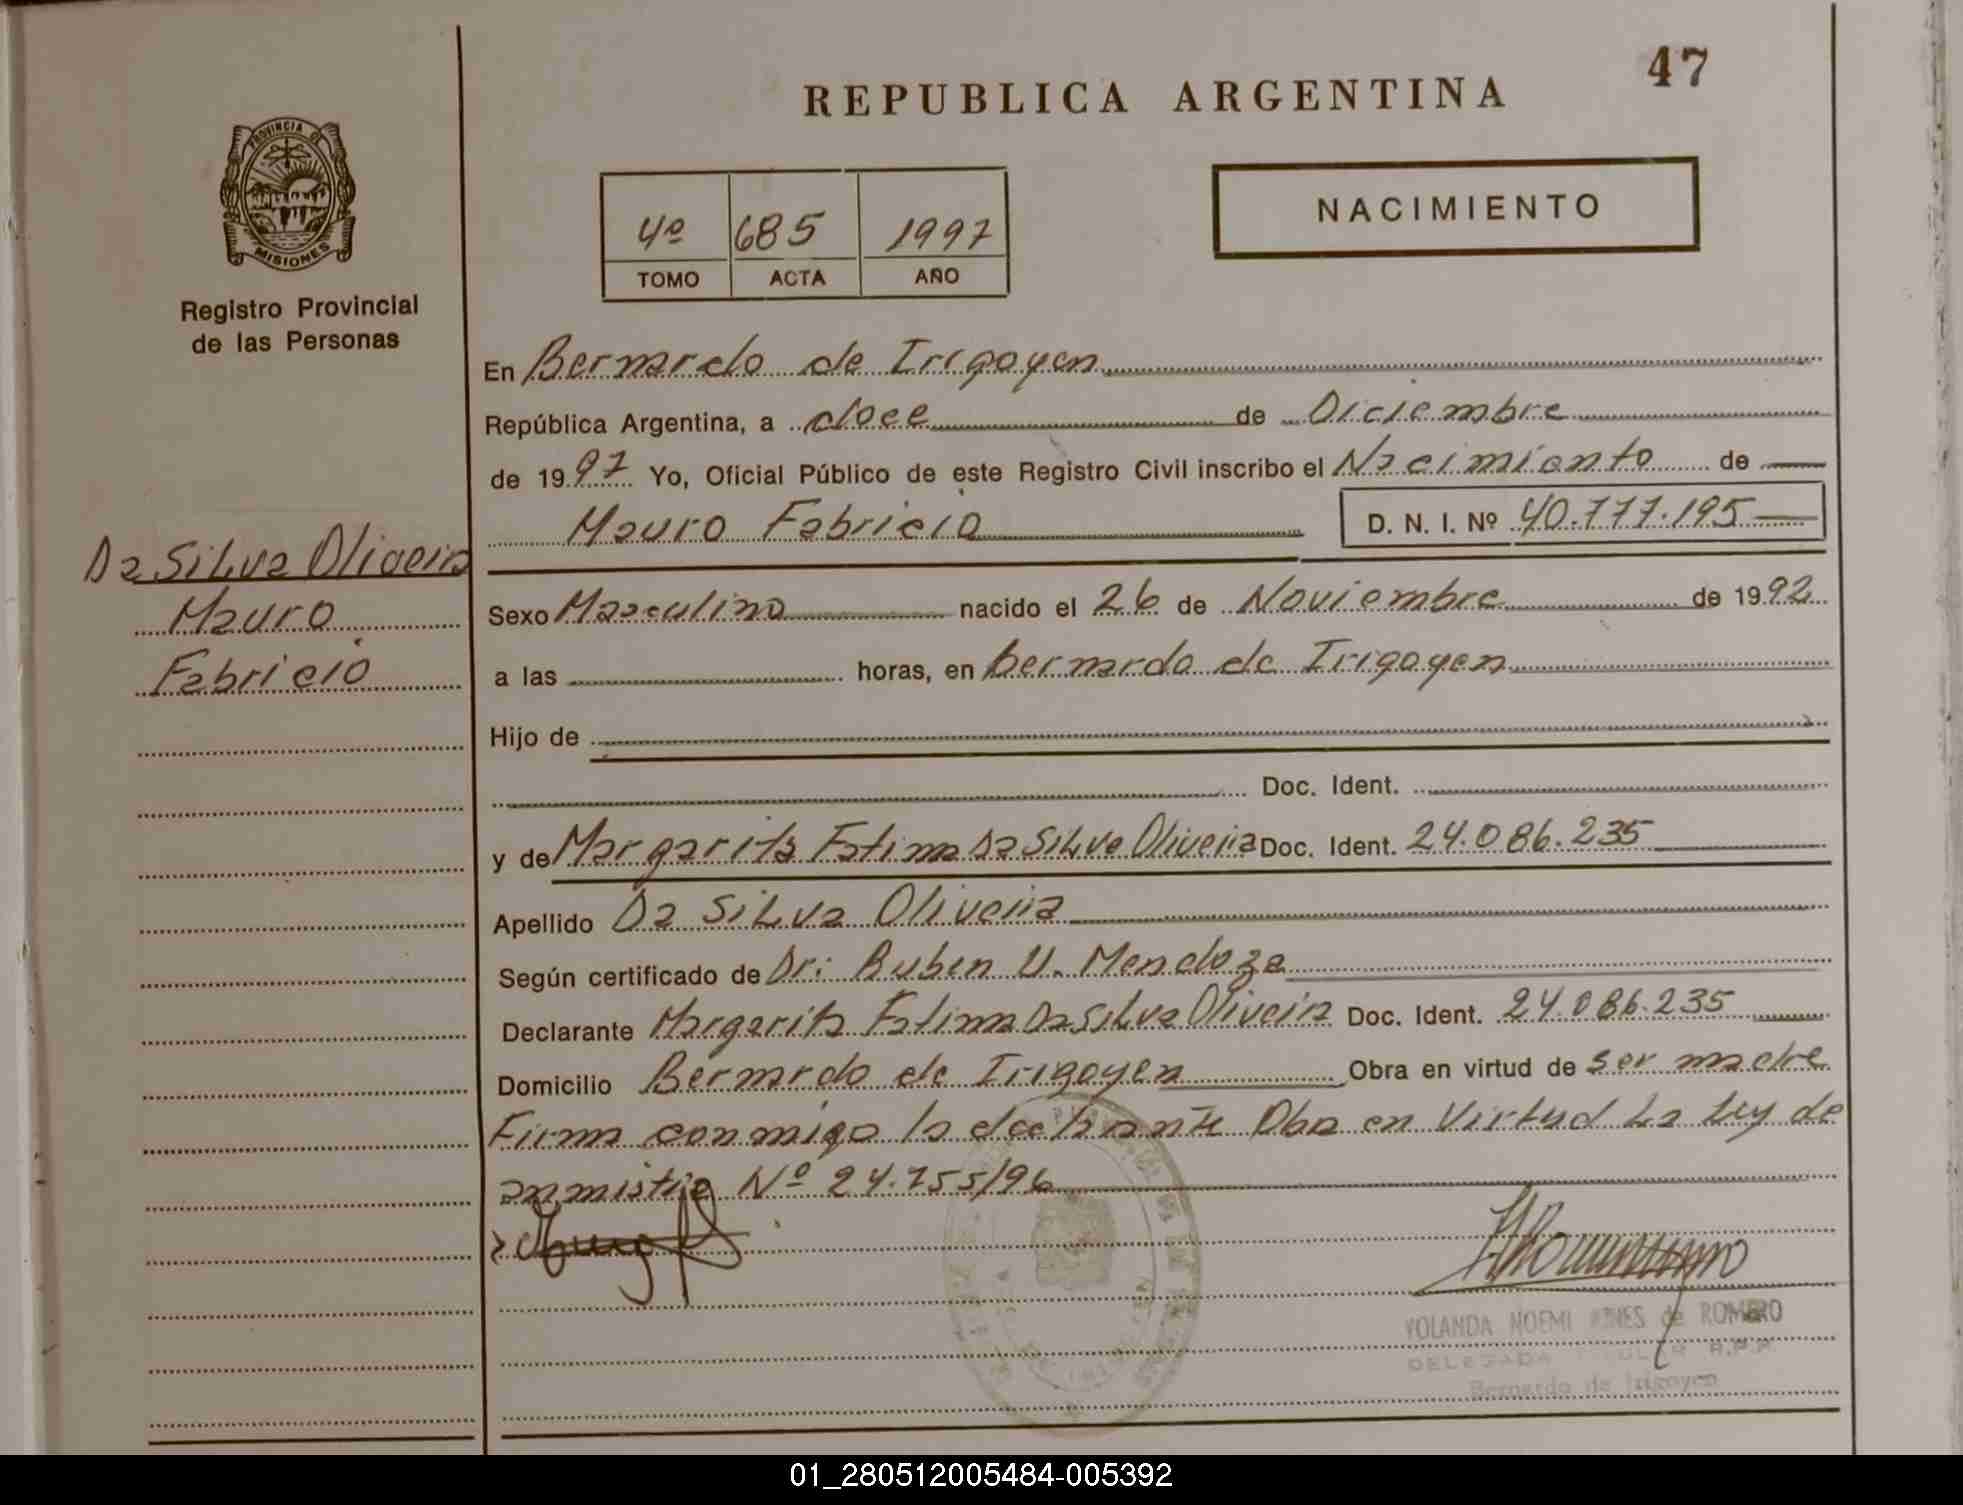 47
REPUBLICA ARGENTINA
PROVINCIA D
MISIONES
Registro Provincial
de las Personas
4º 685 1997
TOMO ACTA AÑO
NACIMIENTO
En Bernardo de Irigoyen
República Argentina, a doce de Diciembre
de 1997 Yo, Oficial Público de este Registro Civil inscribo el Nacimiento de
Mauro Fabricio D. N. I. Nº 40.777.195
Da Silva Oliveira
Mauro
Fabricio
Sexo Masculino nacido el 26 de Noviembre de 1992
a las horas, en bernardo de Irigoyen
Hijo de
Doc. Ident.
y de Margarita Fatima Da Silva Oliveira Doc. Ident. 24.086.235
Apellido Da Silva Oliveira
Según certificado de Dr: Ruben U. Mendoza
Declarante Margarita Fatima Da Silva Oliveira Doc. Ident. 24.086.235
Domicilio Bernardo de Irigoyen Obra en virtud de ser madre
Firma conmigo la declarante Oba en Virtud La Ley de
anmistia Nº 24.755/96
YOLANDA NOEMI de ROMERO
DELEGADA R.P.P.
Bernardo de Irigoyen
01_280512005484-005392